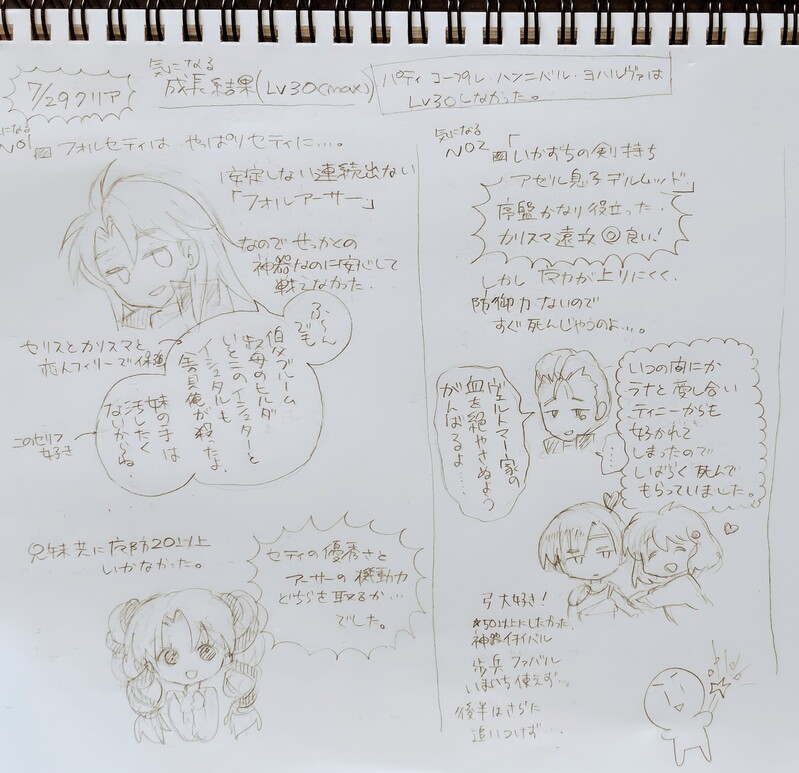 7/29クリア
気になる
成長結果(Lv30(max)
パティ コープル・ハンニバル・ヨハルヴァは
Lv30しなかった。
気になる
No1 フォルセティは やっぱりセティに…。
安定しない連続出ない
「フォルアーサー」
なのでせっかくの
神器なのに安心して
戦えなかった.
ふーん
でも
伯父ブルーム
叔母のヒルダ
いとこのイシュターと
イシュタルも
全員俺が殺ったよ.
妹の手は
汚したく
ないからね.
セリスとカリスマと
恋人フィリーで
このセリフ
好き
兄妹共に魔防20以上
いかなかった。
セティの優秀さと
アーサーの機動力
どちらを取るか…
でした。
気になる
No2 「いかずちの剣持ち
アゼル息子デルムッド」
序盤かなり役立った.
カリスマ遠攻◎良い!
しかし 魔力が上りにくく.
防御力ないので
すぐ死んじゃうのよ…。
ヴェルトマー家の
血を絶やさぬよう
がんばるよ……
いつの間にか
ラナと愛し合い
ティニーからも
好かれて
しまったので
しばらく死んで
もらっていました。
…
弓大好き!
★50以上にしたかった.
神器イチイバル
歩兵 ファバル
いまいち使えず…。
後半はさらに
追いつけず…